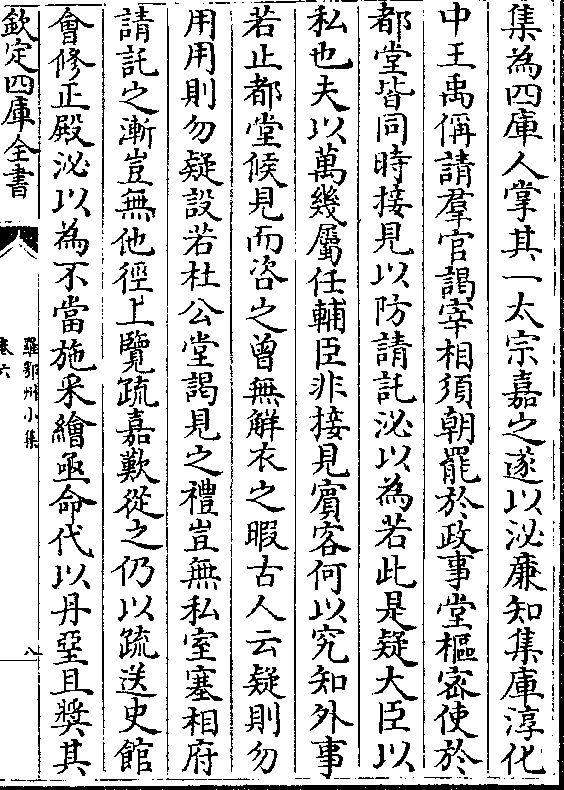 集為四庫人掌其一太宗嘉之遂以泌兼知集庫淳化
中王禹偁請羣官謁宰相須朝罷於政事堂樞密使於
都堂皆同時接見以防請託泌以為若此是疑大臣以
私也夫以萬幾屬任輔臣非接見賔客何以究知外事
若止都堂候見而咨之曾無解衣之暇古人云疑則勿
用用則勿疑設若杜公堂謁見之禮豈無私室塞相府
請託之漸豈無他徑上覽疏嘉歎從之仍以疏送史館
會修正殿泌以為不當施采繪亟命代以丹堊且奬其
欽定四庫全書
羅鄂州小集
卷六
八